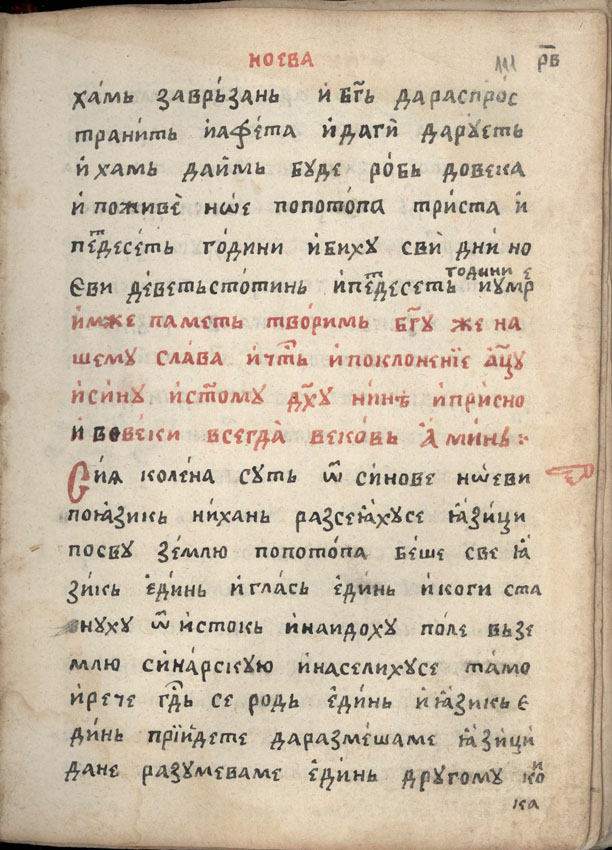 НОЕВА
111 р҃в
ха́мь завръ́зань и҆ бг҃ь да распро́с
транить і҆афе́та и҆ дагӥ да́руеть
и҆ хамь да и҆мь буде ро́бь довека
и҆ поживѐ нѡ́е попото́па три́ста и҆
пе҃десе́ть го́дини и҆ биху свѝ дни́ но
еви де́ветьсто́тинь и҆пе҃десеть године и҆ умр е
и҆мже па́меть тво́римь бг҃у же на
шему сла́ва и҆ чт҃ь и҆ поклоне́нїе ѡ҃цу
и҆ си́ну и҆ ст҃ому дх҃у ни́нѣ и҆ при́сно
и҆ вовеки всегда̀ веко́вь а҆ми́нь :·
Сїѧ̀ коле́на суть ѿ си́нове нѡ́еви
по ѩ҆зикь ни́хань разсеѩ҆хусе ѩ҆зи́ци
посву зе́млю попото́па беше све ѩ҆
зи́кь е҆ди́нь и҆ гла́сь е҆ди́нь и҆ коги ста
нуху ѿ и҆сто́кь и҆ наидоху по́ле въ зе
млю си́на́рскую и҆ населихусе та́мо
и҆ рече гд҃ь се родь е҆ди́нь и҆ ѩ҆зикь е
ди́нь прїи́дете да размеша́ме ѩ҆зи́ци
да не разумеваме е҆ди́нь другому ко и
ка